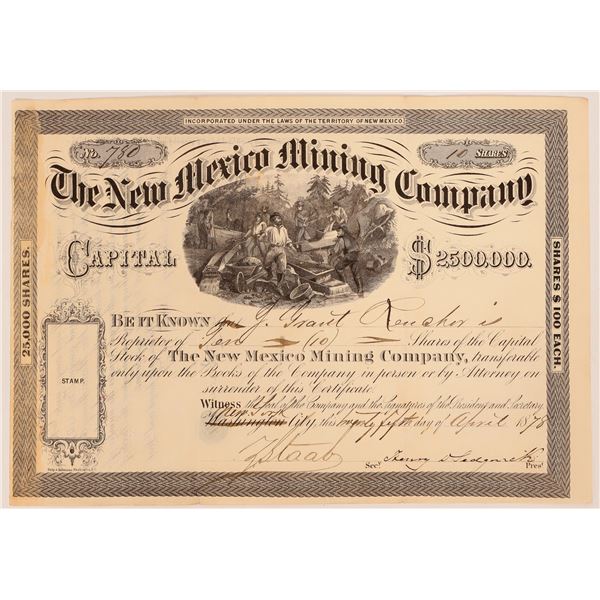 INCORPORATED UNDER THE LAWS OF THE TERRITORY OF NEW MEXICO.
No. 780
10 SHARES
The New Mexico Mining Company
CAPITAL $2500,000.
25,000 SHARES.
SHARES $100 EACH.
BE IT KNOWN J. Grant is
Proprietor of Ten (10) Shares of the Capital
Stock of The New Mexico Mining Company, transferable
only upon the Books of the Company in person or by Attorney on
surrender of this Certificate.
STAMP.
Witness the Seal of the Company and the Signatures of the President and Secretary
New York
Washington City, this twenty fifth day of April 1878
Z Staab Secy.
Henry Prest